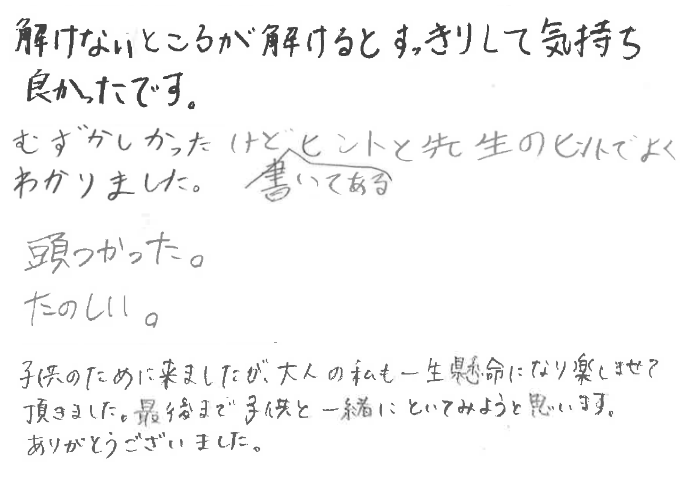 解けないところが解けるとすっきりして気持ち
良かったです。
むずかしかったけど書いてあるヒントと先生のヒントでよく
わかりました。
頭つかった。
たのしい。
子供のために来ましたが、大人の私も一生懸命になり楽しませて
頂きました。最後まで子供と一緒にといてみようと思います。
ありがとうございました。